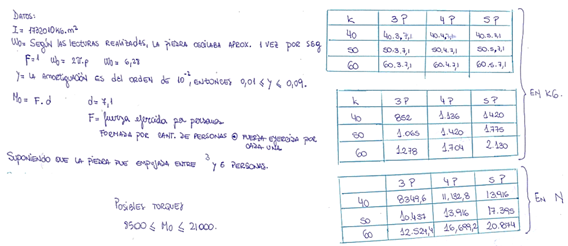 DATOS:
I = 1732010 KG.m²
W₀= SEGÚN LAS LECTURAS REALIZADAS, LA PIEDRA OSCILABA APROX. 1 VEZ POR SEG
F=1 W₀ = 2π.F W₀ = 6,28
γ= LA AMORTIGUACIÓN ES DEL ORDEN DE 10⁻², ENTONCES 0,01 ≤ γ ≤ 0,09.
M₀ = F.d d = 7,1
F = fuerza ejercida por persona
FORMADA POR CANT. DE PERSONAS ⊙ FUERZA EJERCIDA POR CADA UNA
SUPONIENDO QUE LA PIEDRA FUE EMPUJADA ENTRE 3 Y 5 PERSONAS.
POSIBLES TORQUES
8500 ≤ M₀ ≤ 21000.
K 3P 4P 5P
40 40.3.7,1 40.4.7,1 40.5.7,1
50 50.3.7,1 50.4.7,1 50.5.7,1
60 60.3.7,1 60.4.7,1 60.5.7,1
K 3P 4P 5P
40 852 1.136 1420
50 1.065 1.420 1775
60 1278 1,704 2.130
EN KG.
3P 4P 5P
40 8349,6 11.132,8 13.916
50 10.437 13,916 17.395
60 12.524,4 16,699,2 20.874
EN N